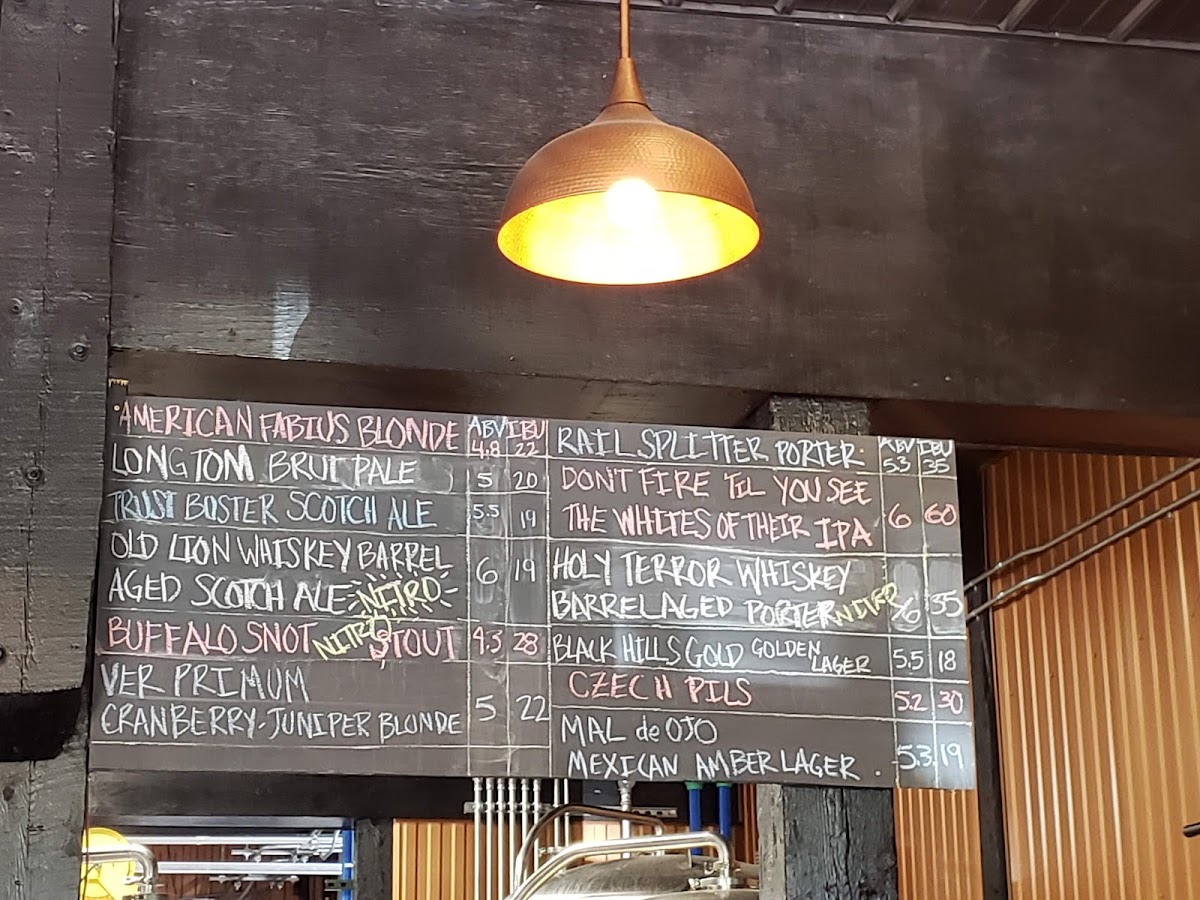 AMERICAN FABIUS BLONDE ABV 4.8 IBU 22
LONG TOM BRUT PALE 5 20
TRUST BUSTER SCOTCH ALE 5.5 19
OLD LION WHISKEY BARREL
AGED SCOTCH ALE NITRO 6 19
BUFFALO SNOT NITRO STOUT 4.3 28
VER PRIMUM
CRANBERRY-JUNIPER BLONDE 5 22
RAIL SPLITTER PORTER ABV 5.3 IBU 35
DON'T FIRE TIL YOU SEE
THE WHITES OF THEIR IPA 6 60
HOLY TERROR WHISKEY
BARREL AGED PORTER NITRO 6 35
BLACK HILLS GOLD GOLDEN LAGER 5.5 18
CZECH PILS 5.2 30
MAL de OJO
MEXICAN AMBER LAGER 5.3 19